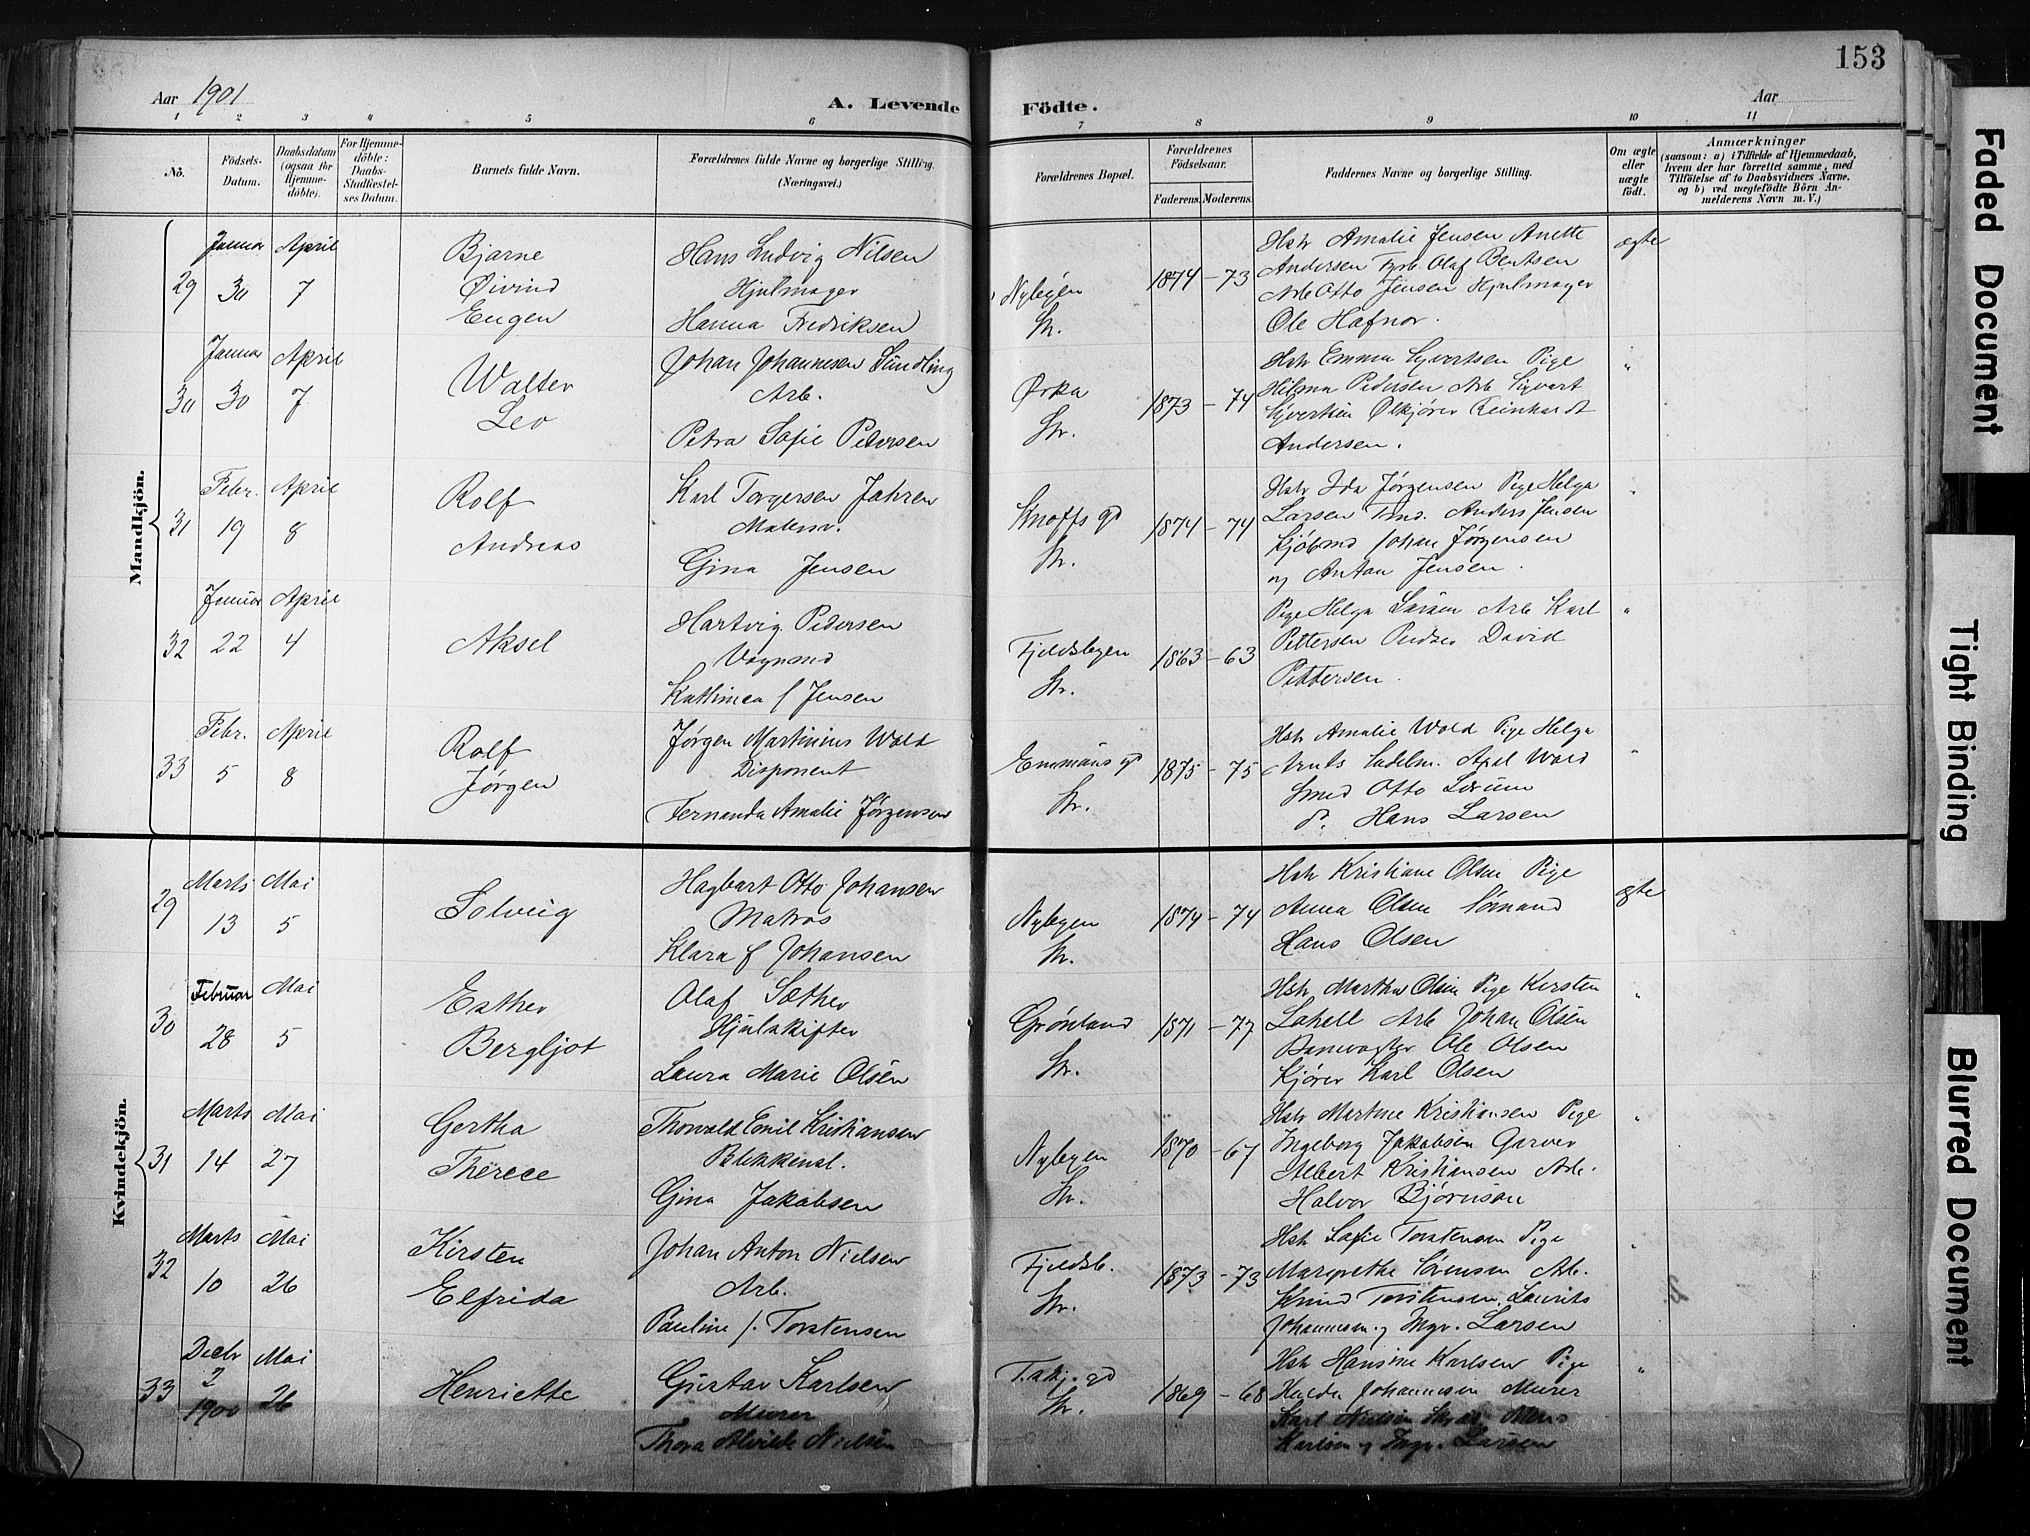 153
Aar 1901
A. Levende Födte.
Aar
1 2 3 4 5 6 7 8 9 10 11
No.
Födsels-Datum.
Daabsdatum (ogsaa for Hjemmedöbte).
For Hjemmedöbte: Daabs-Stadfæstelses Datum.
Barnets fulde Navn.
Forældrenes fulde Navne og borgerlige Stilling. (Næringsvei.)
Forældrenes Bopæl.
Forældrenes Födselsaar.
Faderens. Moderens.
Faddernes Navne og borgerlige Stilling.
Om ægte eller uægte födt.
Anmærkninger
(saasom: a) i Tilfælde af Hjemmedaab,
hvem der har forrettet samme, med
Tilföielse af to Daabsvidners Navne,
og b) ved uægtefödte Börn An-
melderens Navn m. V.)
Mandkjön.
29
Januar 30
April 7
Bjarne
Øivind
Eugen
Hans Ludvig Nilsen
Hjulmager
Hanna Fredriksen
Nybyen
Str.
1874 - 73
Hstr Amalie Jensen Anette
Andersen Fyrb. Olaf Bentsen
Arb Otto Jensen Hjulmager
Ole Hafnor.
ægte
30
Januar 30
April 7
Walter
Leo
Johan Johannesen Sundling
Arb.
Petra Sofie Pedersen
Ørka
Str.
1873 - 74
Hstr Emma Syvertsen Pige
Hilma Pedersen Arb Sigvart
Syvertsen Ølkjører Reinhardt
Andersen.
"
31
Febr. 19
April 8
Rolf
Andreas
Karl Torgersen Jahren
Malersv.
Gina Jensen
Knoffs gd
Str.
1874 - 74
Hstr Ida Jørgensen Pige Helga
Larsen Tmd. Anders Jensen
Kjøbmd Johan Jørgensen
og Anton Jensen.
"
32
Januar 22
April 4
Aksel
Hartvig Pedersen
Vognmd
Kathinca f Jensen
Fjeldsbyen
Str.
1863 - 63
Pige Helga Larsen Arb Karl
Pettersen Pudser David
Pettersen.
"
33
Febr. 5
April 8
Rolf
Jørgen
Jørgen Martinius Wold
Disponent
Fernanda Amalie Jørgensen
Emmaus gd
Str.
1875 - 75
Hstr Amalie Wold Pige Helga
Sadelm. Axel Wold
Smed Otto
Hans Larsen
"
Kvindekjön.
29
Marts 13
Mai 5
Solveig
Hagbart Otto Johansen
Matros
Klara f Johansen
Nybyen
Str.
1874 - 74
Hstr Kristiane Olsen Pige
Anna Olsen Sømand
Hans Olsen
ægte
30
Februar 28
Mai 5
Esther
Bergljot
Olaf Sæther
Hjulskifter
Laura Marie Olsen
Grønland
Str.
1871 - 77
Hstr Martha Olsen Pige Kirsten
Lahell Arb Johan Olsen
Banevogter Ole Olsen
Kjører Karl Olsen
"
31
Marts 14
Mai 27
Gertha
Therece
Thorvald Emil Kristiansen
Blikkensl.
Gina Jakobsen
Nybyen
Str.
1870 - 67
Hstr Martine Kristiansen Pige
Ingeborg Jakobsen Garver
Albert Kristiansen Arb.
Halvor Bjørnson
"
32
Marts 10
Mai 26
Kirsten
Elfrida
Johan Anton Nielsen
Arb.
Pauline f. Torstensen
Fjeldsb.
Str.
1873 - 73
Hstr Sofie Torstensen Pige
Margrethe Sørensen Arb.
Knud Torstensen Laurits
Johannesen og Ingv. Larsen
"
33
Decbr 2 1900
Mai 26
Henriette
Gustav Karlsen
Murer
Thora Alvilde Nielsen
Takj. gd
Str.
1869 - 68
Hstr Hansine Karlsen Pige
Hulda Johannesen Murer
Karl Nielsen
Karlsen og Ingv. Larsen
"
Faded Document
Tight Binding
Blurred Document